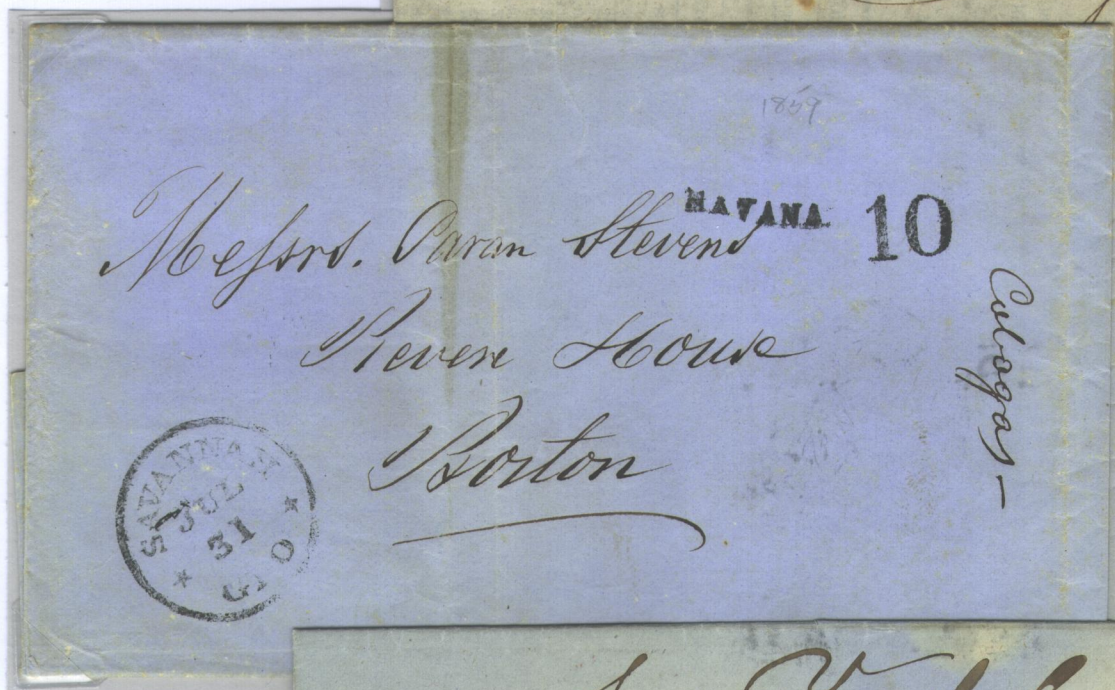 1859
HAVANA.
10
Messrs. Paran Stevens
Revere House
Boston
Cubagas —
SAVANNAH
JUL
31
GEO